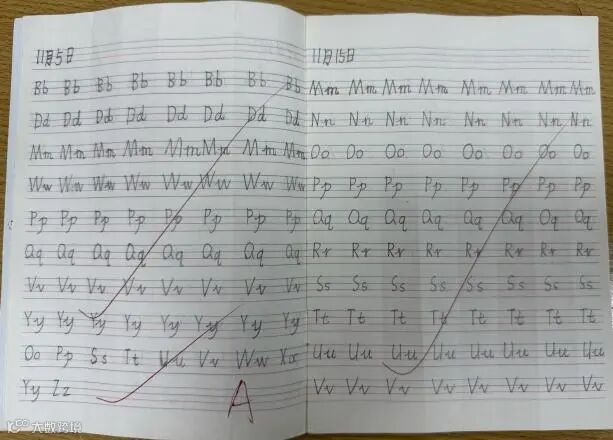 11月5日
Bb Bb Bb Bb Bb Bb Bb Bb
Dd Dd Dd Dd Dd Dd Dd Dd
Mm Mm Mm Mm Mm Mm Mm Mm
Ww Ww Ww Ww Ww Ww Ww Ww
Pp Pp Pp Pp Pp Pp Pp Pp
Qq Qq Qq Qq Qq Qq Qq Qq
Vv Vv Vv Vv Vv Vv Vv Vv
Yy Yy Yy Yy Yy Yy Yy Yy
Oo Pp Ss Tt Uu Vv Ww Xx
Yy Zz
A
11月15日
Mm Mm Mm Mm Mm Mm Mm Mm
Nn Nn Nn Nn Nn Nn Nn Nn
Oo Oo Oo Oo Oo Oo Oo Oo
Pp Pp Pp Pp Pp Pp Pp Pp
Qq Qq Qq Qq Qq Qq Qq Qq
Rr Rr Rr Rr Rr Rr Rr Rr
Ss Ss Ss Ss Ss Ss Ss Ss
Tt Tt Tt Tt Tt Tt Tt Tt
Uu Uu Uu Uu Uu Uu Uu Uu
Vv Vv Vv Vv Vv Vv Vv Vv
大数跨境